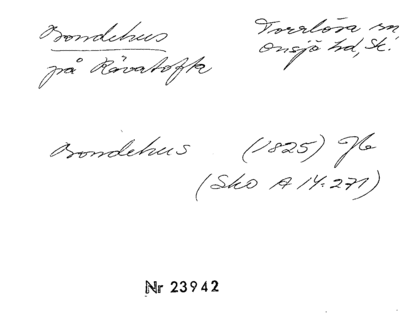 Bondehus Torrlösa sn
på Rävatofta Onsjö hd, Sk.
Bondehus (1825) Jb
(Sko A 14:271)
Nr 23942